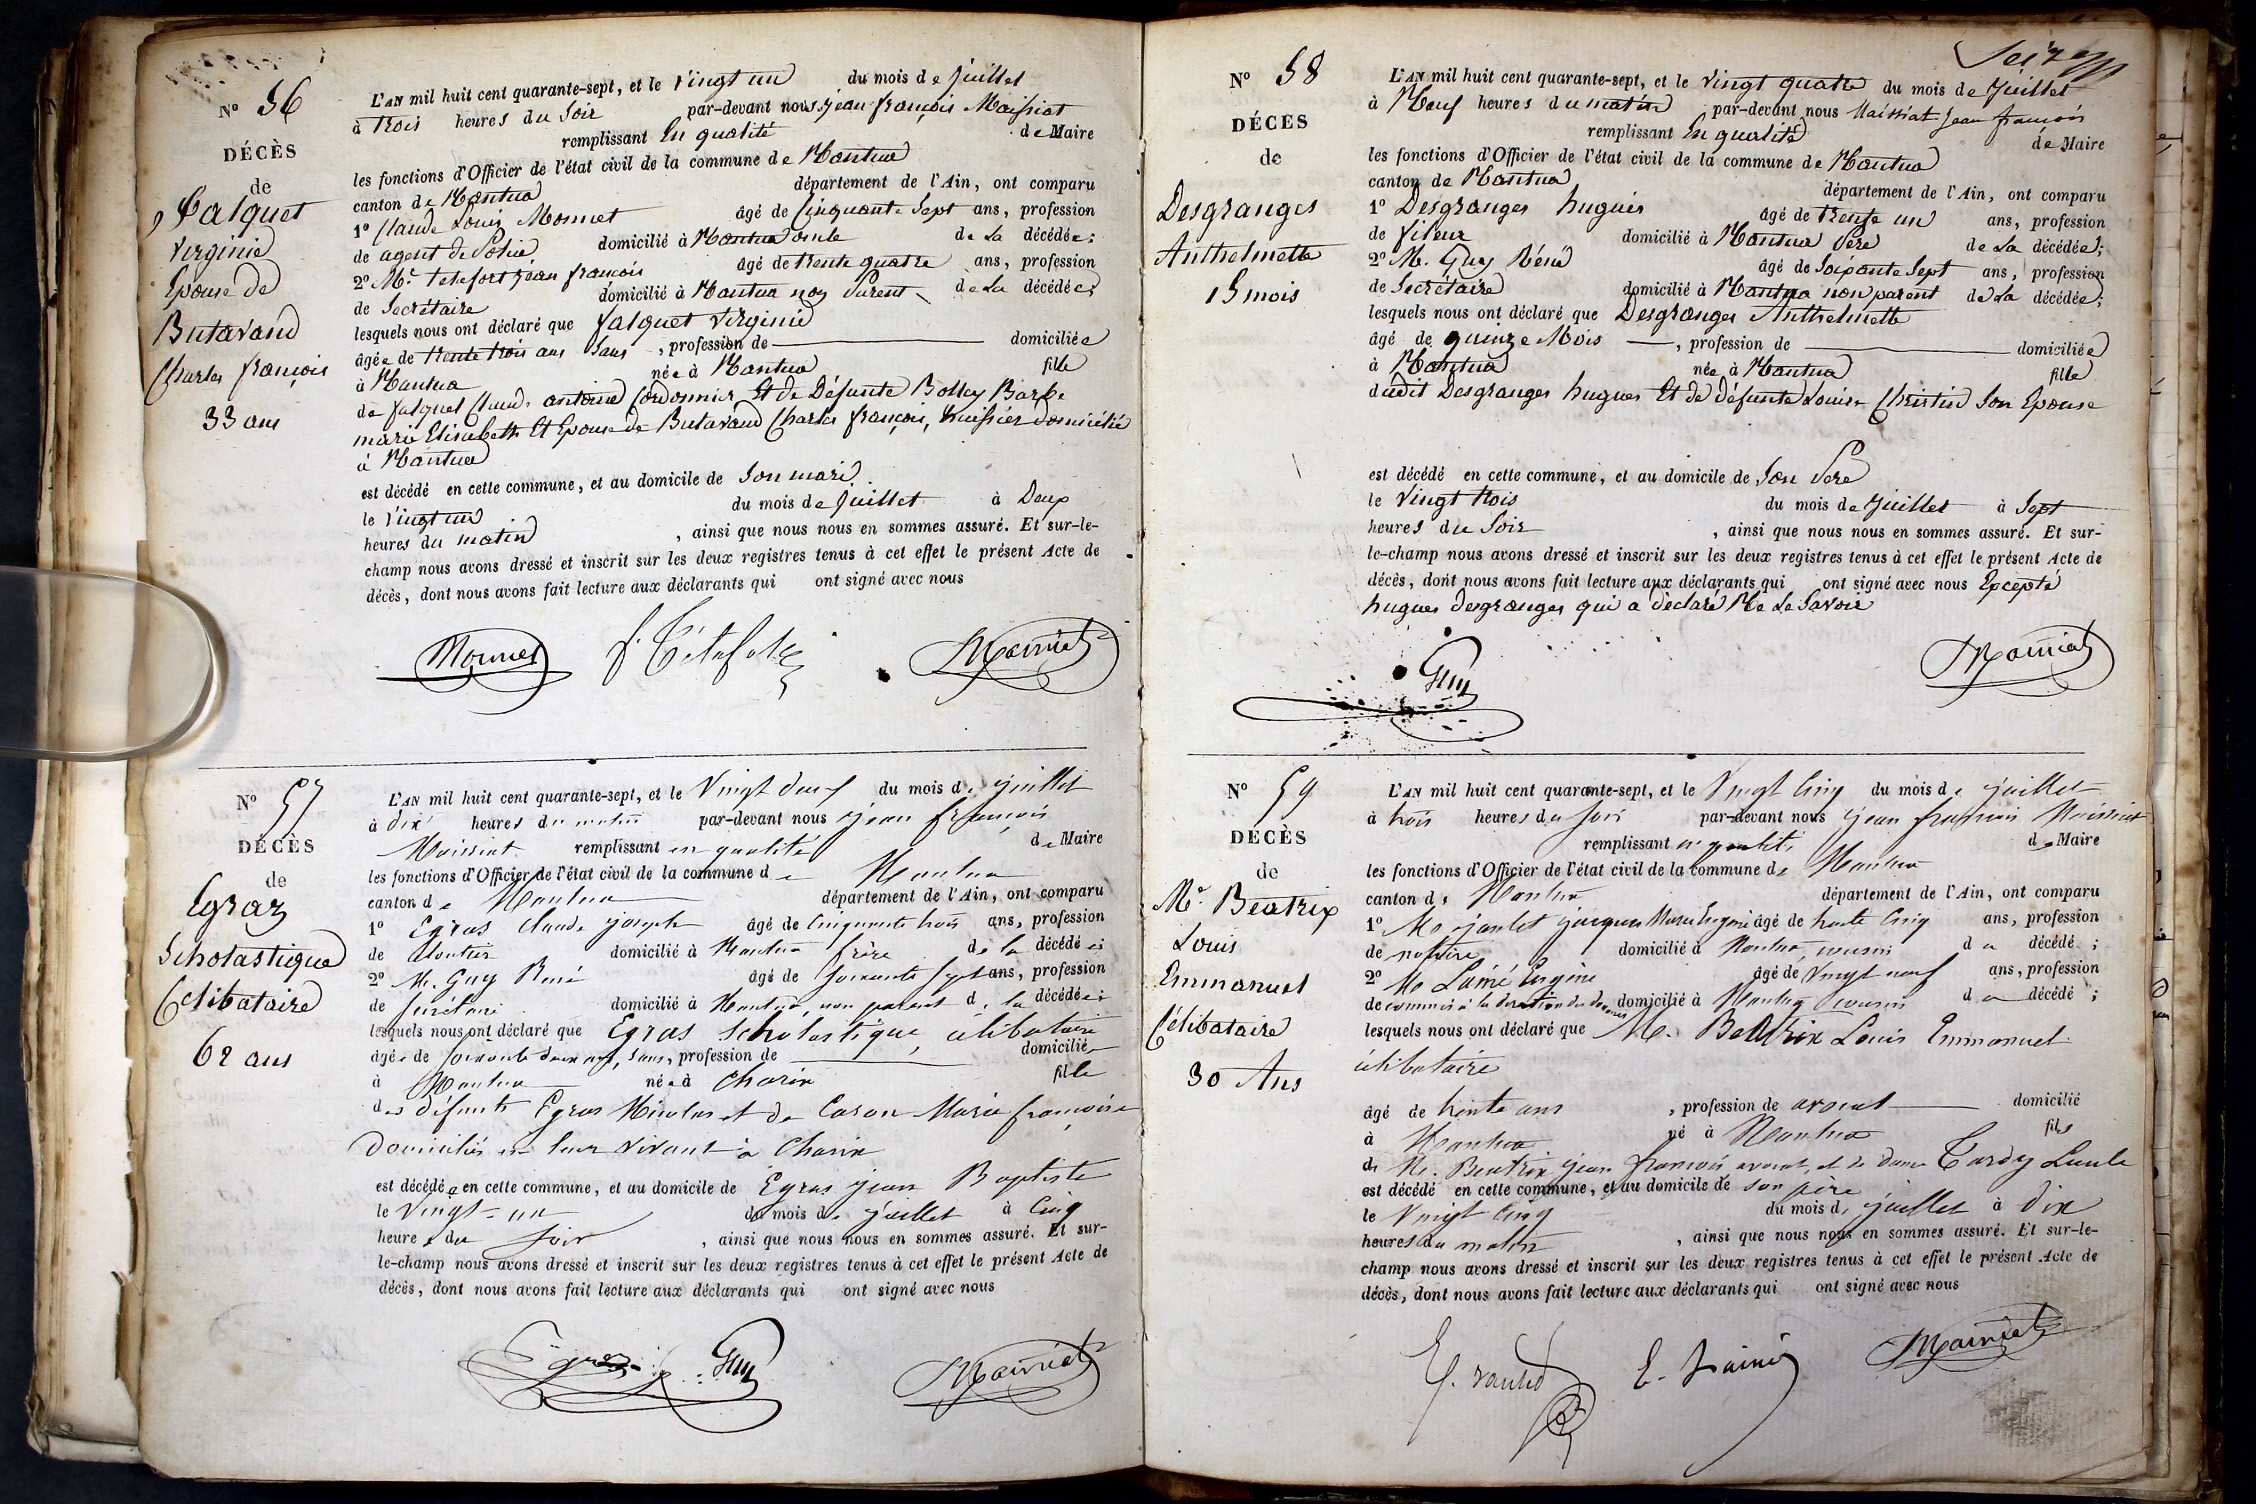 Nº 56
DÉCÈS
de
Falquet
Virginie
Epouse de
Butavand
Charles françois
33 ans
L'AN mil huit cent quarante-sept, et le Vingt un du mois de Juillet
à trois heures du Soir par-devant nous jean françois Maissiat
remplissant En qualité de Maire
les fonctions d'Officier de l'état civil de la commune de Nantua
canton de Nantua département de l'Ain, ont comparu
1º Claude Louis Monnet âgé de Cinquante Sept ans, profession
de agent de Police domicilié à Nantua oncle de La décédée;
2º Mr. tetefort jean françois âgé de trente quatre ans, profession
de Secrétaire domicilié à Nantua non Parent de La décédée;
lesquels nous ont déclaré que falquet Virginie
âgée de trente trois ans Sans , profession de domiciliée
à Nantua née à Nantua fille
de falquet Claude antoine Cordonnier Et de Défunte Bolley Barbe
marie Elisabeth Et Epouse de Butavand Charles françois, huissier domicilié
à Nantua
est décédé en cette commune, et au domicile de Son mari
le Vingt un du mois de Juillet à Deux
heures du matin , ainsi que nous nous en sommes assuré. Et sur-le-
champ nous avons dressé et inscrit sur les deux registres tenus à cet effet le présent Acte de
décès, dont nous avons fait lecture aux déclarants qui ont signé avec nous
Monnet f. Tetefort Maissiat
Nº 57
DÉCÈS
de
Egraz
Scholastique
Célibataire
62 ans
L'AN mil huit cent quarante-sept, et le Vingt deux du mois de juillet
à dix heures du matin par-devant nous jean françois
Maissiat remplissant en qualité de Maire
les fonctions d'Officier de l'état civil de la commune de Nantua
canton de Nantua département de l'Ain, ont comparu
1º Egras Claude joseph âgé de Cinquante trois ans, profession
de cloutier domicilié à Nantua frère de la décédée;
2º M. Guy René âgé de soixante sept ans, profession
de secrétaire domicilié à Nantua, non parent de la décédée;
lesquels nous ont déclaré que Egras Scholastique, célibataire
âgée de soixante deux ans, sans, profession de domiciliée
à Nantua née à Charix fille
des défunts Egras Nicolas et de Caron Marie françoise
domiciliés en leur vivant à Charix
est décédée en cette commune, et au domicile de Egras jean Baptiste
le Vingt-un du mois de juillet à Cinq
heures du soir , ainsi que nous nous en sommes assuré. Et sur-
le-champ nous avons dressé et inscrit sur les deux registres tenus à cet effet le présent Acte de
décès, dont nous avons fait lecture aux déclarants qui ont signé avec nous
Egraz Guy Maissiat
Nº 58
DÉCÈS
de
Desgranges
Anthelmette
15 mois
L'AN mil huit cent quarante-sept, et le Vingt quatre du mois de Juillet
à Neuf heures du matin par-devant nous Maissiat jean françois
remplissant En qualité de Maire
les fonctions d'Officier de l'état civil de la commune de Nantua
canton de Nantua département de l'Ain, ont comparu
1º Desgranges hugues âgé de trente un ans, profession
de fileur domicilié à Nantua Père de La décédée;
2º M. Guy Réné âgé de Soixante Sept ans, profession
de Secrétaire domicilié à Nantua non parent de La décédée;
lesquels nous ont déclaré que Desgranges Anthelmette
âgé de quinze Mois , profession de domiciliée
à Nantua née à Nantua fille
dudit Desgranges hugues Et de Défunte Louise Christin Son Epouse
est décédé en cette commune, et au domicile de Son Père
le Vingt trois du mois de Juillet à Sept
heures du Soir , ainsi que nous nous en sommes assuré. Et sur-
le-champ nous avons dressé et inscrit sur les deux registres tenus à cet effet le présent Acte de
décès, dont nous avons fait lecture aux déclarants qui ont signé avec nous Excepté
hugues desgranges qui a déclaré Ne Le Savoir
Guy Maissiat
Nº 59
DÉCÈS
de
Mr. Beatrix
Louis
Emmanuel
Célibataire
30 Ans
L'AN mil huit cent quarante-sept, et le Vingt Cinq du mois de juillet
à trois heures du soir par-devant nous jean françois Maissiat
remplissant en qualité de Maire
les fonctions d'Officier de l'état civil de la commune de Nantua
canton de Nantua département de l'Ain, ont comparu
1º Me jantet jacques Marie Eugène âgé de trente Cinq ans, profession
de notaire domicilié à Nantua, cousin du décédé ;
2º Me Lainé Eugène âgé de Vingt neuf ans, profession
de commis à la direction des domaines domicilié à Nantua cousin du décédé ;
lesquels nous ont déclaré que M. Beatrix Louis Emmanuel
célibataire
âgé de trente ans , profession de avocat domicilié
à Nantua né à Nantua fils
de M. Beatrix jean françois avocat, et de dame Tardy Lucile
est décédé en cette commune, et au domicile de son père
le Vingt Cinq du mois de juillet à dix
heures du matin , ainsi que nous nous en sommes assuré. Et sur-le-
champ nous avons dressé et inscrit sur les deux registres tenus à cet effet le présent Acte de
décès, dont nous avons fait lecture aux déclarants qui ont signé avec nous
E. Lainé Maissiat